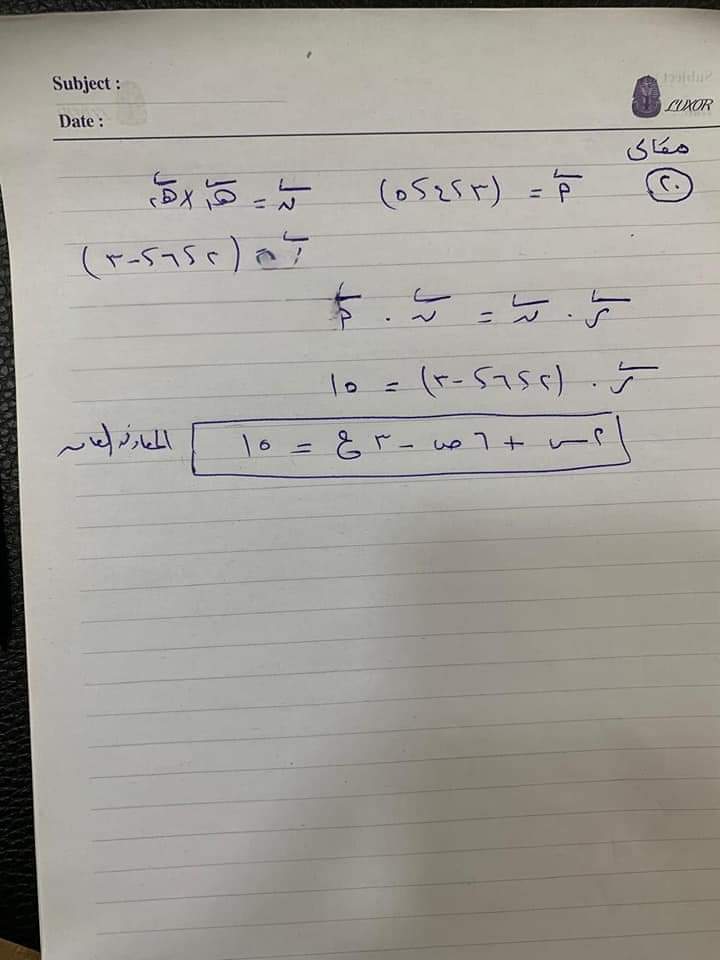 Subject :
LUXOR
Date :
مقالى
٢٠ أ = (٣، ٤، ٥) ن = هـ١ × هـ٢
ن = (٢، ٦، -٣)
ر . ن = ن . أ
ر . (٢، ٦، -٣) = ١٥
٢س + ٦ص - ٣ع = ١٥ المعادلة العامه